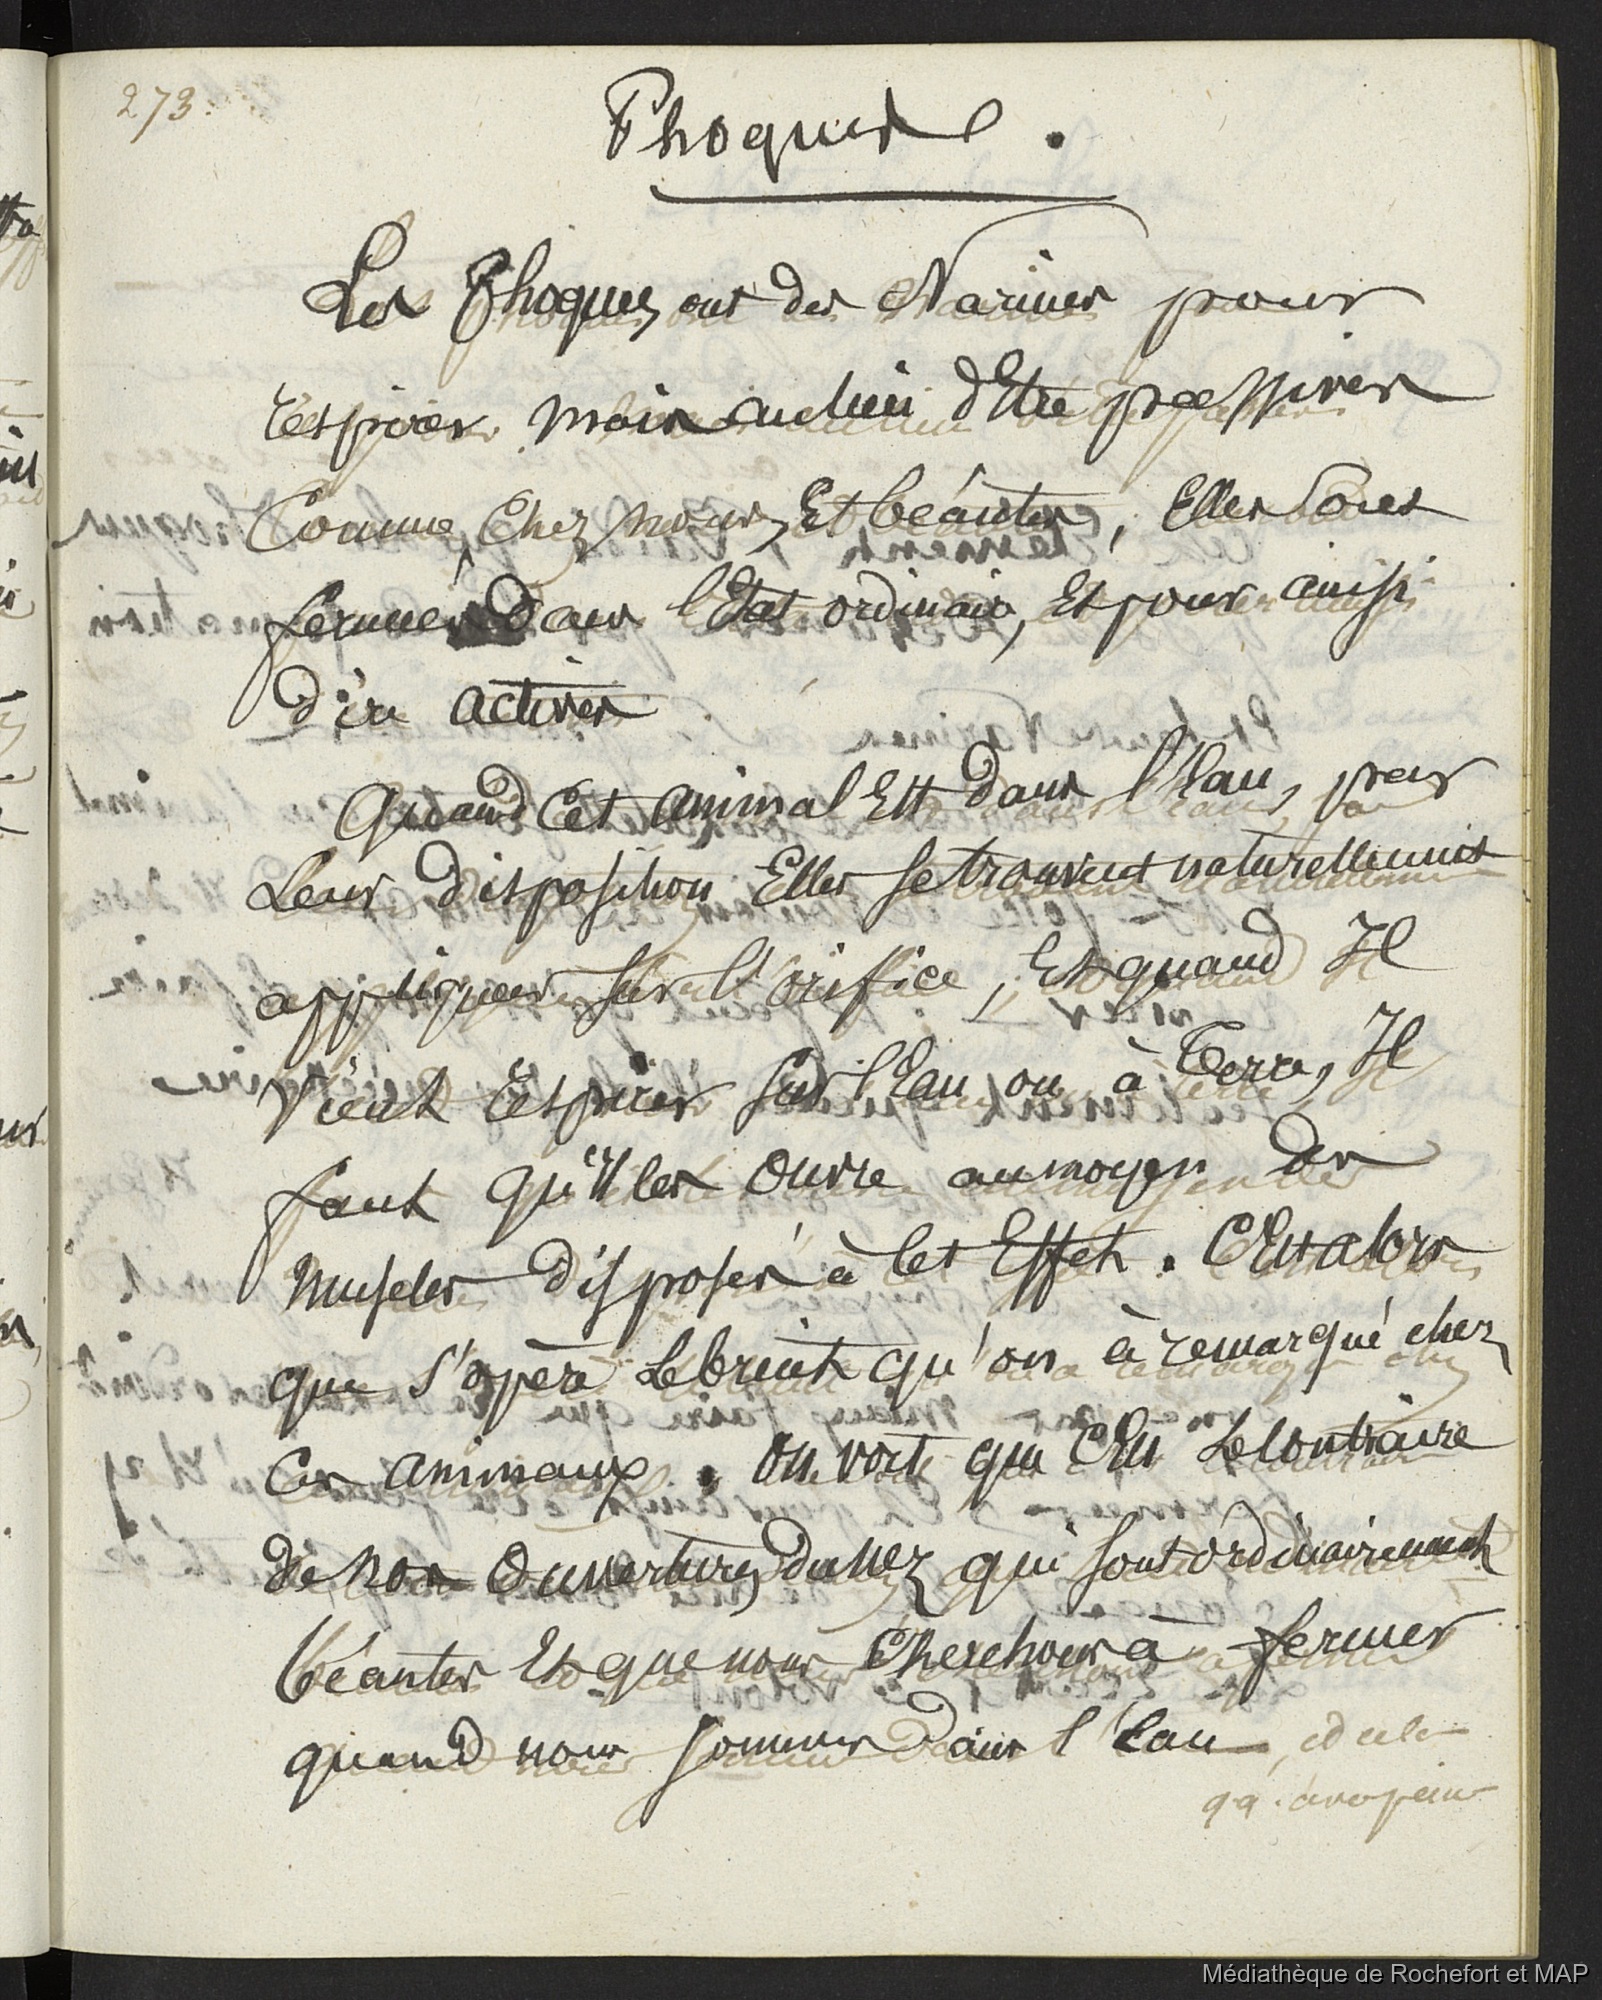 273.
Phoques.
Les Phoques ont des Narines pour
respirer mais au lieu d'Etre passives
Comme Chez nous, Et béantes, Elles Sont
fermées Dans l'Etat ordinaire, Et pour ainsi
dire actives
Quand Cet animal Est dans l'Eau, par
Leur disposition Elles se trouvent naturellement
appliquées sur l'orifice, Et quand Il
Vient respirer sur l'Eau ou à Terre, Il
faut qu'Il les ouvre au moyen des
Muscles disposés à Cet Effet. C'Est alors
que s'opère Le bruit qu'on à remarqué chez
Ces animaux. On voit que C'Est Le Contraire
de nos Ouvertures du nez qui sont ordinairement
béantes Et que nous Cherchons à fermer
quand nous sommes Dans l'Eau
Médiathèque de Rochefort et MAP